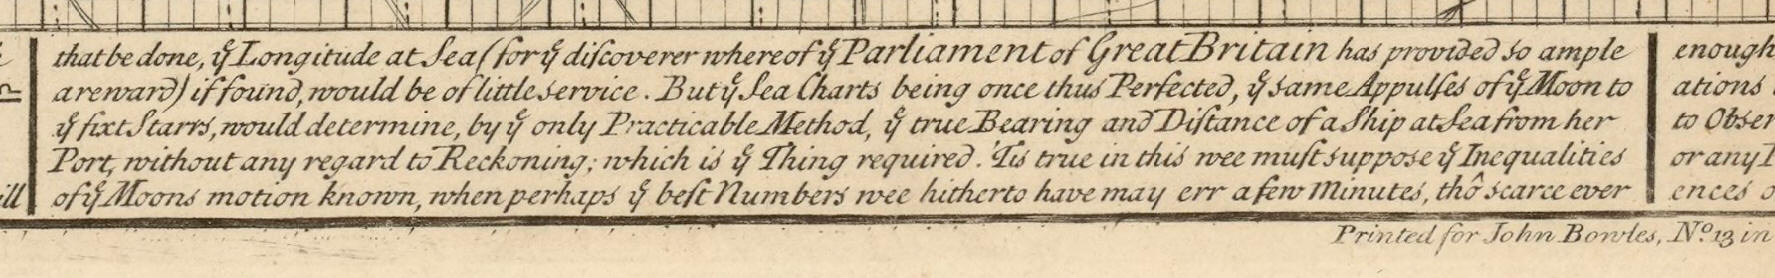 that be done, yͤ Longitude at Sea (for yͤ discoverer whereof yͤ Parliament of Great Britain has provided so ample
a reward) if found, would be of little service. But yͤ Sea Charts being once thus Perfected, yͤ same Appulses of yͤ Moon to
yͤ fixt Starrs, would determine, by yͤ only Practicable Method, yͤ true Bearing and Distance of a Ship at Sea from her
Port, without any regard to Reckoning; which is yͤ Thing required. 'Tis true in this wee must suppose yͤ Inequalities
of yͤ Moons motion known, when perhaps yͤ best Numbers wee hitherto have may err a few Minutes, thô scarce ever
ill
enough
ations
to Obser
or any
ences o
Printed for John Bowles, Nº. 13 in